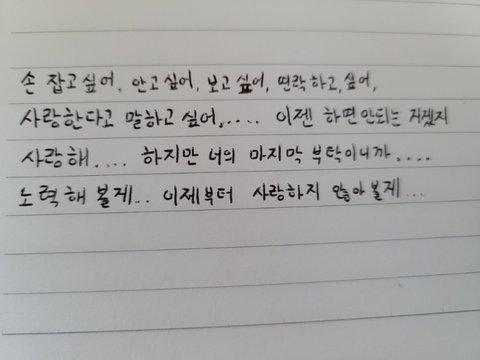 손 잡고싶어, 안고싶어, 보고싶어, 연락하고싶어,
사랑한다고 말하고 싶어,.... 이젠 하면안되는 거겠지
사랑해.... 하지만 너의 마지막 부탁이니까....
노력해 볼게... 이제부터 사랑하지 않아볼게...